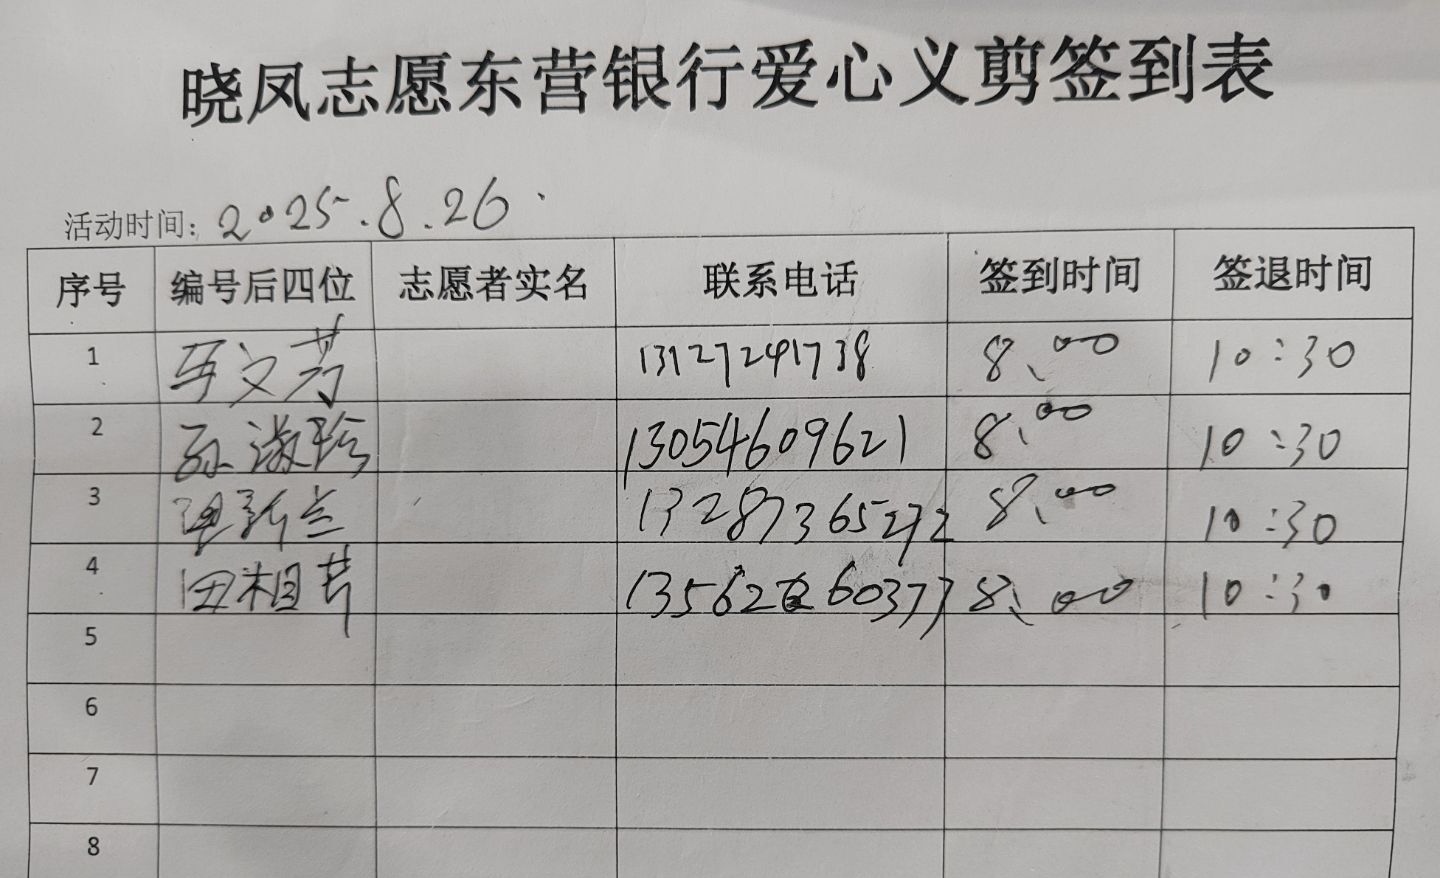 晓凤志愿东营银行爱心义剪签到表
活动时间：2025.8.26.
序号 编号后四位 志愿者实名 联系电话 签到时间 签退时间
1 文芳 13127241738 8、00 10:30
2 孙淑珍 13054609621 8、00 10:30
3 新兰 13287365272 8、00 10:30
4 田相芹 8、00 10:30
5
6
7
8